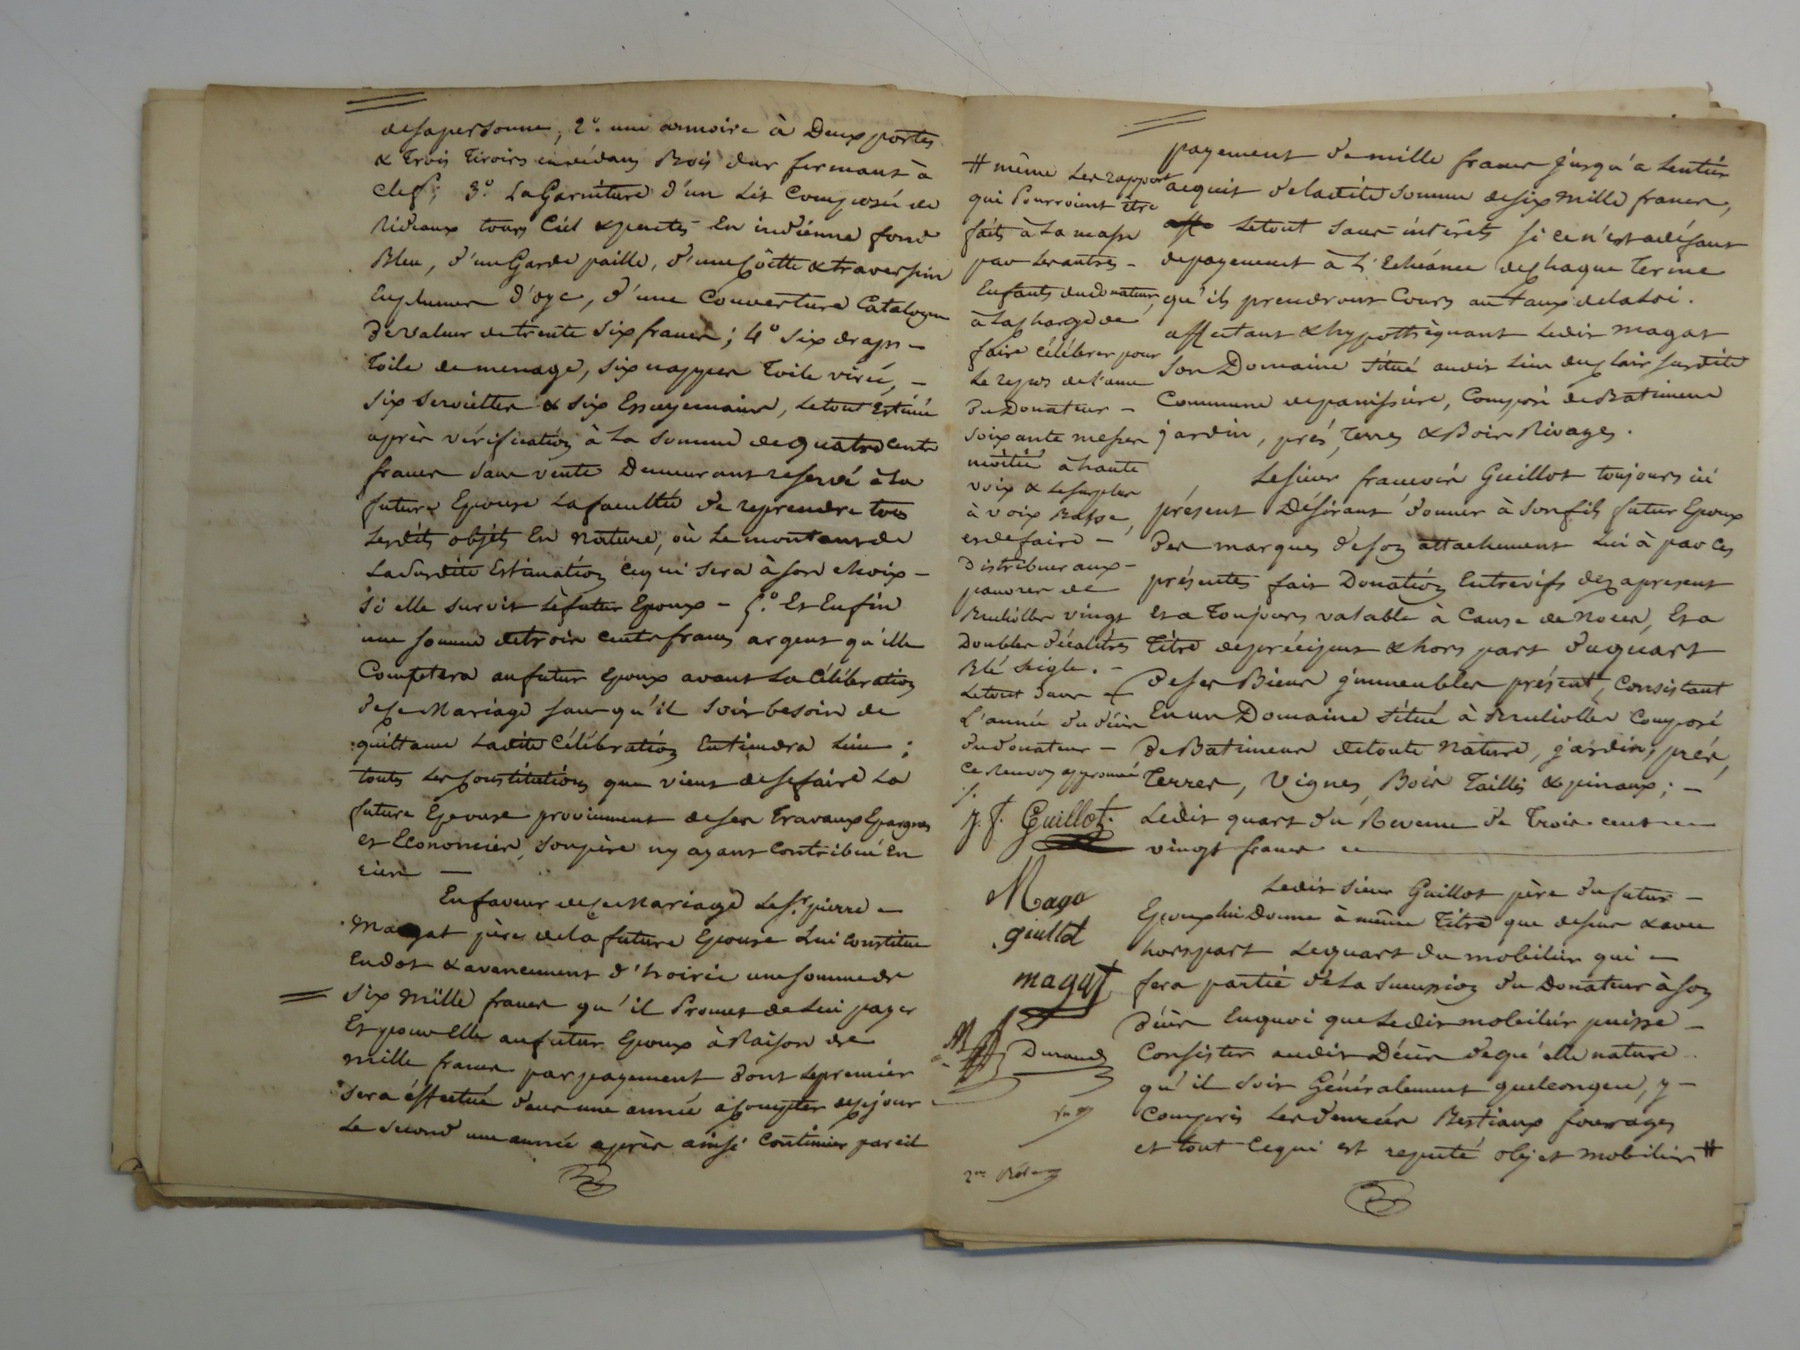 desapersonne, 2° une armoire à Deux portes
& trois tiroirs en dedans Bois dur fermant à
clef; 3° La Garniture d'un Lit Composée de
Rideaux tours Ciel & pentes En indiénne fond
Bleu, d'une Garde paille, d'une Coëtte & traversin
En plumes d'oye, d'une Couverture Catalogne
De valeur de trente six francs; 4° six draps –
toile de menage, six nappes toile virée, –
six serviettes & six Essuyemains, Letout Estimé
après vérification à La somme de quatre cents
francs sans vente Demeurant reservé à La
future Epouse La faculté de reprendre tous
Lesdits objéts En Nature, où Le montant de
La Susdite Estimation Cequi sera à son choix –
si elle survit Le futur Epoux – 5.° Et Enfin
une somme de trois cents francs argent qu'elle
Comptera au futur Epoux avant La Célébration
de ce Mariage sans qu'il soit besoin de
quittance Ladite Célébration En tiendra Lieu;
toutes Les Constitutions que vient de se faire La
future Epouse proviennent de ses travaux Epargnes
et Economies, son père n'y ayant Contribué En
rien —
En faveur de ce Mariage Le S.r pierre –
Magat père de La future Epouse Lui Constitue
En dot & avancement d'hoirie une somme de
Six mille francs qu'il Promet de Lui payer
Et pour Elle au futur Epoux à Raison de
mille francs par payement dont Le premier
sera éffectué dans une année à Compter de ce jour
Le second une année après ainsi Continuer pareil
payement de mille francs jusqu'a Lentier
acquit de ladite somme de six mille francs,
Letout sans intérêts si ce n'est à défaut
de payement à L'Echéance de Chaque terme
qu'ils prendront Cours au taux de la Loi.
affectant & hypothéquant Ledit magat
son Domaine situé audit Lieu du susdite
Commune de panissiére, Composé de Batiments
jardin, prés, terres & Bois Rivages.
Le sieur francois Guillot toujours ici
présent Désirant donner à son fils futur Epoux
Des marques de son attachement Lui à par Ces
présentes fait Donation Entrevifs dez apresent
Et a toujours valable à Cause de Noces, Et a
titre de préciput & hors part du quart
de ses Biens immeubles présent, Consistant
En un Domaine situé à Composé
De Batiments de toute Nature, jardins, prés,
terres, Vignes, Bois taillis & pinaux; –
Ledit quart du Revenu de Trois cent
vingt francs
Ledit sieur Guillot père du futur –
Epoux lui Donne à même titre que dessus & avec
hors part Le quart du mobilier qui –
sera partie de La succession du Donateur à son
décès En quoi que Ledit mobilier puisse –
Consister audit Décès de qu'elle nature
qu'il soit Généralement quelconque, y –
Compris Les denrées Bestiaux fourrages
et tout Cequi est reputé objet mobilier #
# même Les rapports
qui Pourroient être
faits à La masse
par Les autres –
Enfants du donateur,
à La Charge de
faire célébrer pour
Le repos de l'ame
Du Donateur –
soixante messes
moitié à haute
voix & Le surplus
à voix Basse,
et de faire –
Distribuer aux –
pauvres de
vingt
Doubles décalitres
Blé seigle. –
Letout dans
L'année du décès
du donateur –
Ce Renvoi approuvé
j. f. Guillot
Mago
guillot
magat
Durand
2.me Rôle